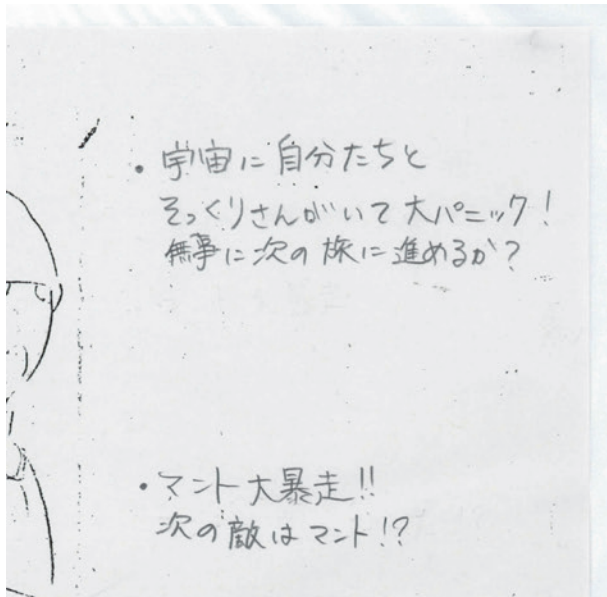 ・宇宙に自分たちと
そっくりさんがいて大パニック!
無事に次の旅に進めるか?
・マント大暴走!!
次の敵はマント!?